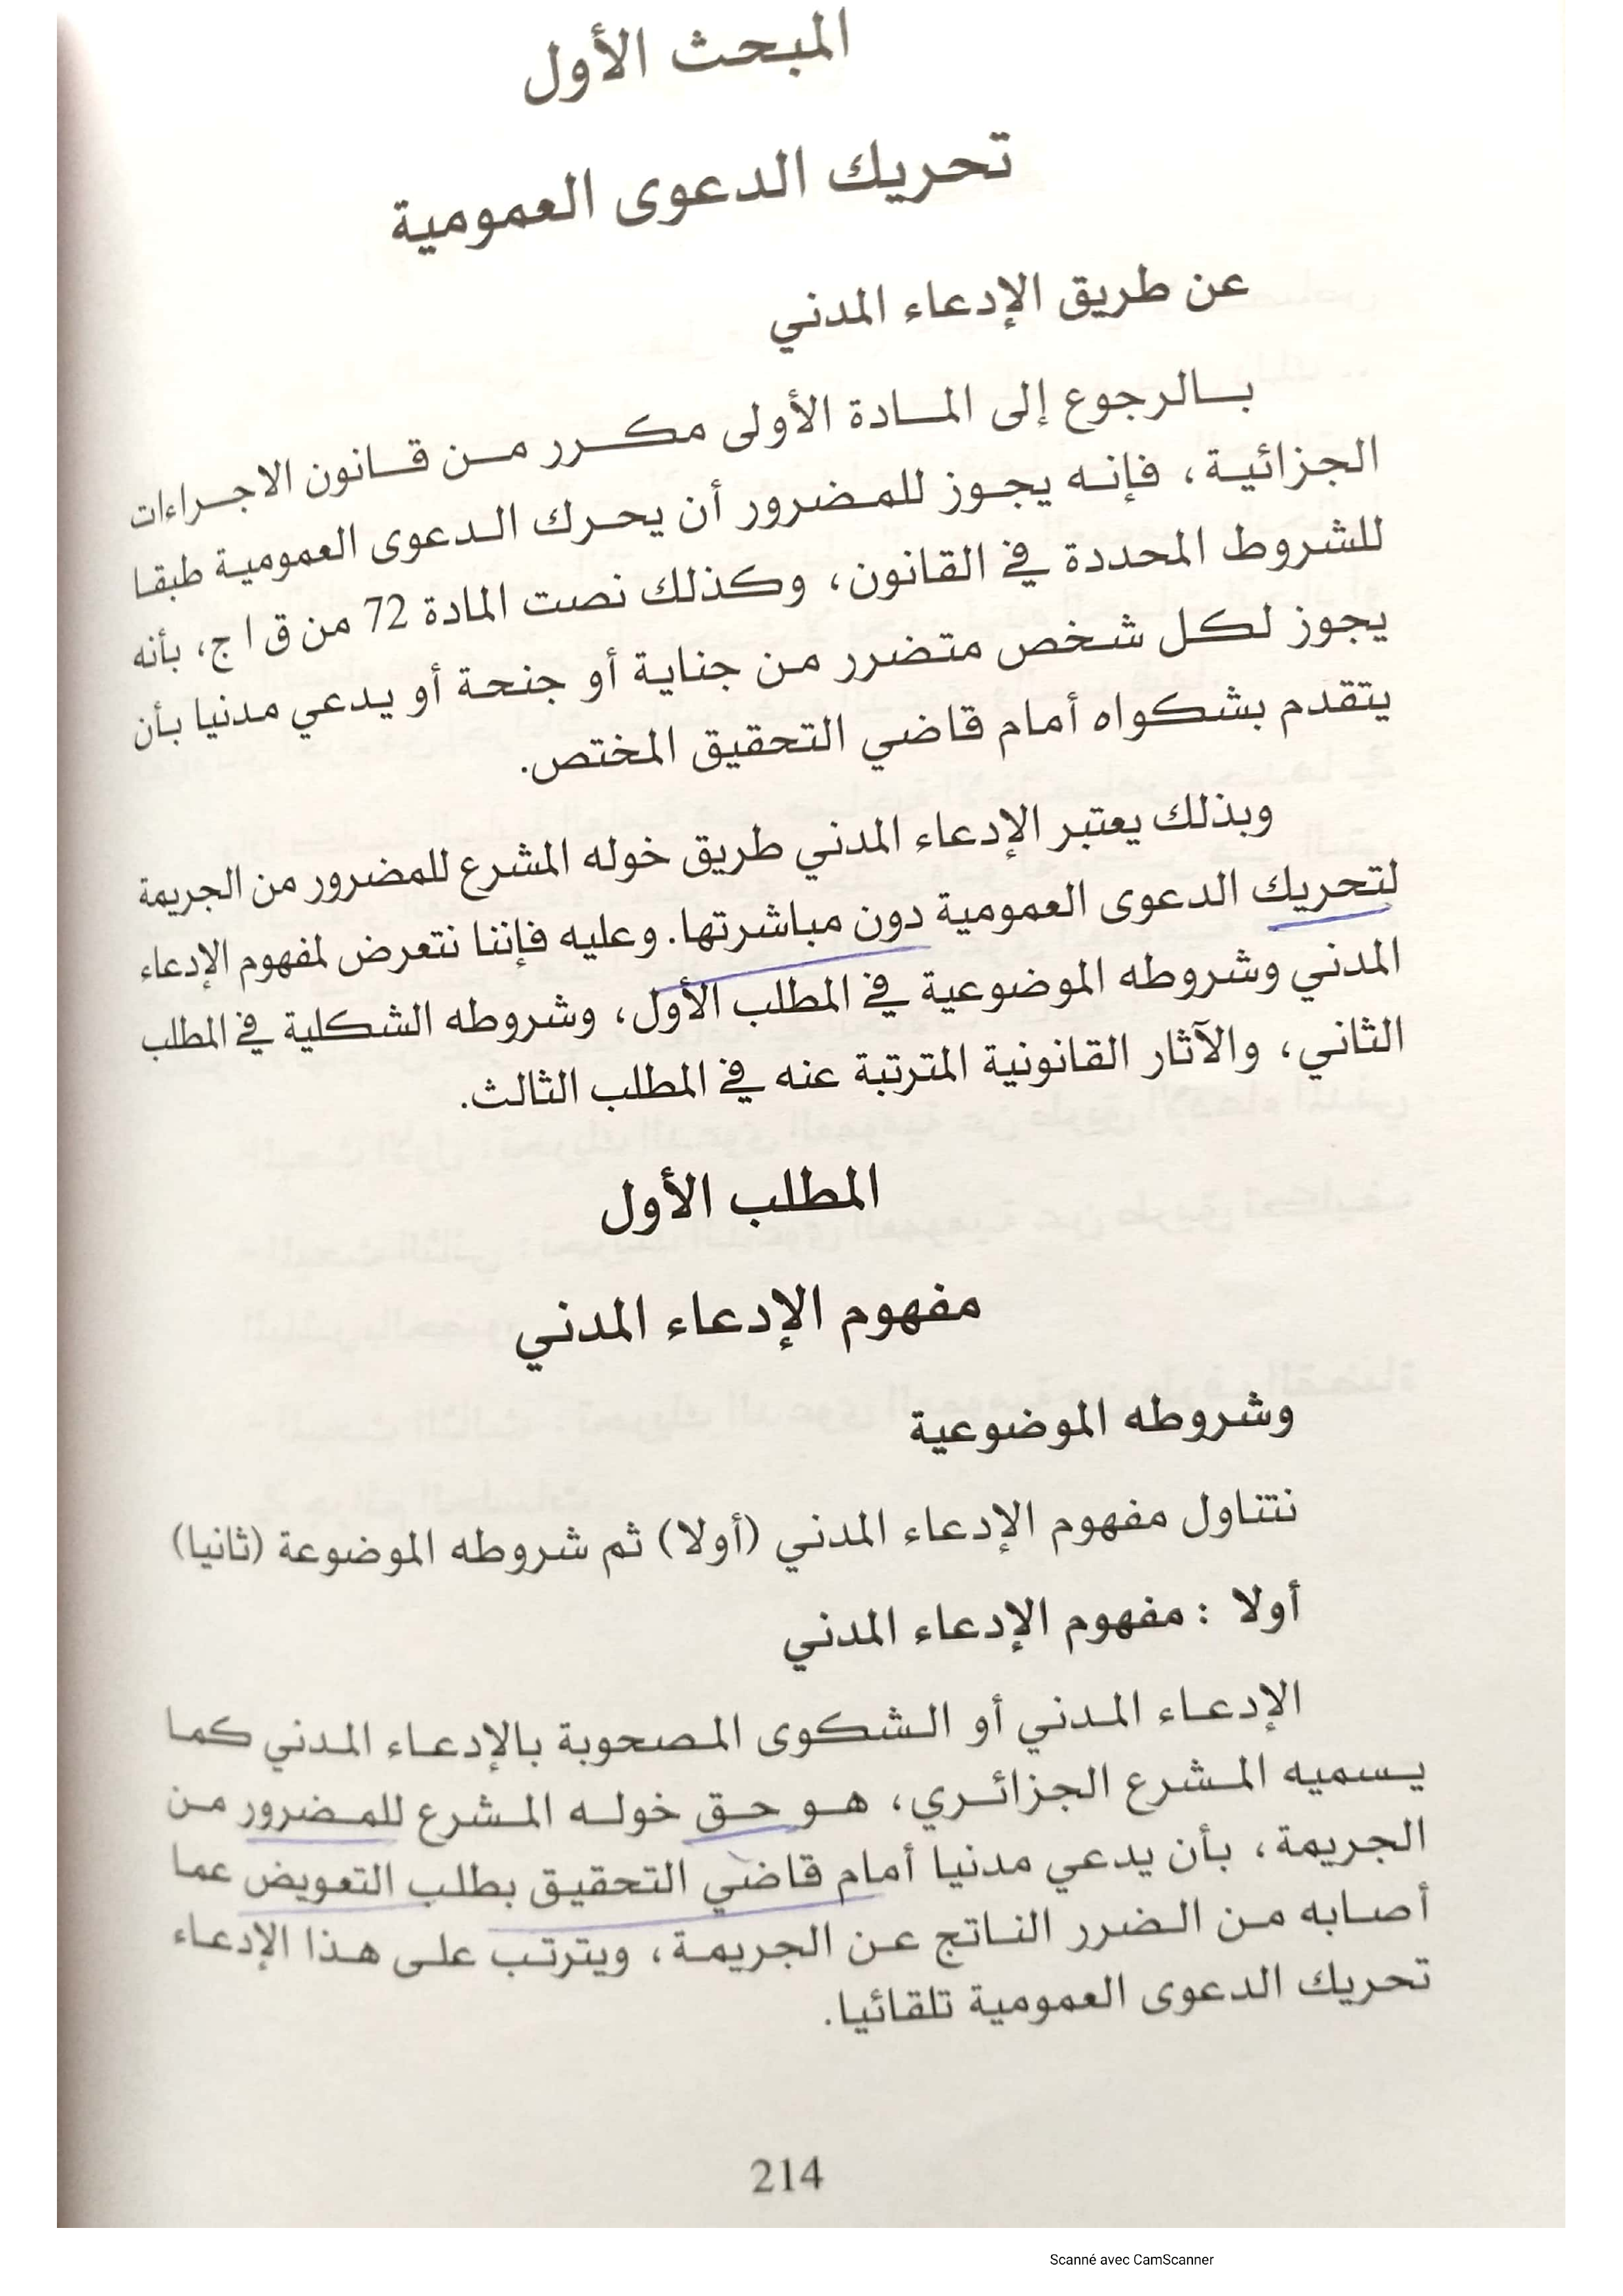 المبحث الأول
تحريك الدعوى العمومية
عن طريق الإدعاء المدني
بالرجوع إلى المادة الأولى مكرر من قانون الاجراءات
الجزائية، فإنه يجوز للمضرور أن يحرك الدعوى العمومية طبقا
للشروط المحددة في القانون، وكذلك نصت المادة 72 من ق ا ج، بأنه
يجوز لكل شخص متضرر من جناية أو جنحة أو يدعي مدنيا بأن
يتقدم بشكواه أمام قاضي التحقيق المختص.
وبذلك يعتبر الإدعاء المدني طريق خوله المشرع للمضرور من الجريمة
لتحريك الدعوى العمومية دون مباشرتها. وعليه فإننا نتعرض لمفهوم الإدعاء
المدني وشروطه الموضوعية في المطلب الأول، وشروطه الشكلية في المطلب
الثاني، والآثار القانونية المترتبة عنه في المطلب الثالث.
المطلب الأول
مفهوم الإدعاء المدني
وشروطه الموضوعية
نتناول مفهوم الإدعاء المدني (أولا) ثم شروطه الموضوعة (ثانيا)
أولا : مفهوم الإدعاء المدني
الإدعاء المدني أو الشكوى المصحوبة بالإدعاء المدني كما
يسميه المشرع الجزائري، هو حق خوله المشرع للمضرور من
الجريمة، بأن يدعي مدنيا أمام قاضي التحقيق بطلب التعويض عما
أصابه من الضرر الناتج عن الجريمة، ويترتب على هذا الإدعاء
تحريك الدعوى العمومية تلقائيا.
214
Scanné avec CamScanner